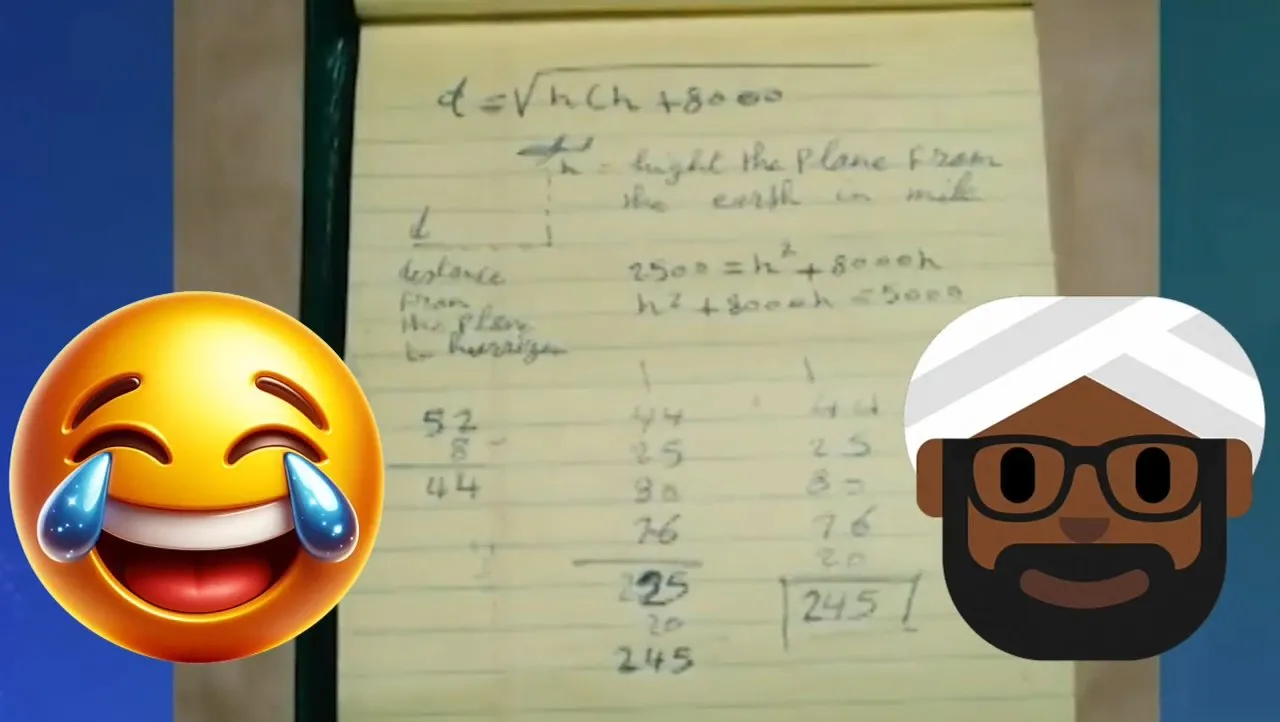 d = √h(h + 8000
h = hight the plane from
the earth in mile
d
distance
from
the plane
to horrizen
2500 = h² + 8000h
h² + 8000h = 5000
52
8 -
44
44
25
80
76
225
20
245
44
25
80
76
20
245